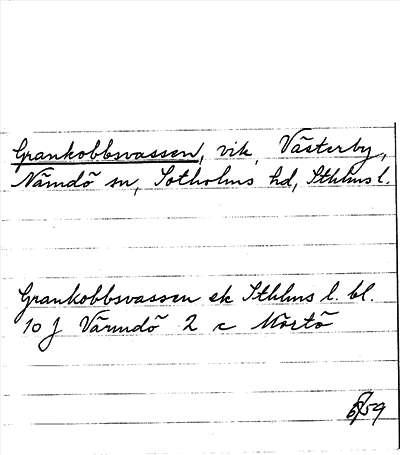 Grankobbsvassen, vik, Västerby,
Nämdö sn, Sotholms hd, Sthlms l.
Grankobbsvassen ek Sthlms l. bl.
10 J Värmdö 2 c Mörtö
59